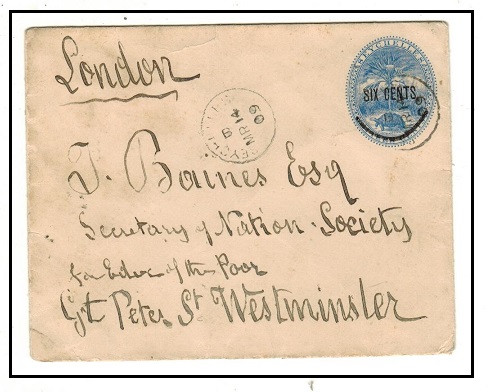 London
SEYCHELLES
SIX CENTS
SEYCHELLES
B
MR 14
09
J. Baines Esq
Secretary of Nation. Society
for Educ of the Poor
Gt Peter St Westminster